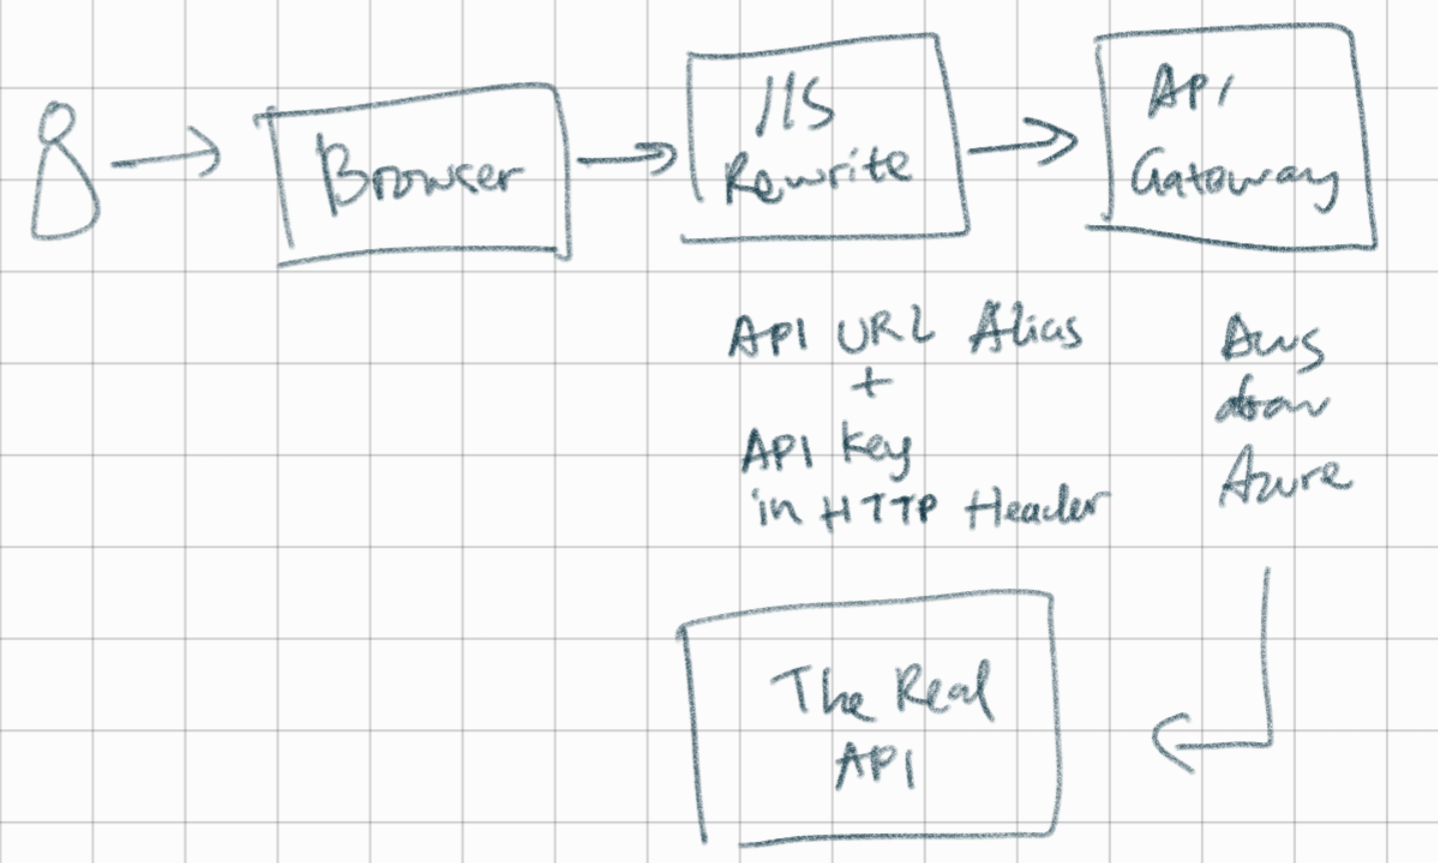 Browser
IIS
Rewrite
API
Gateway
API URL Alias
+
API Key
in HTTP Header
Aws
atau
Azure
The Real
API